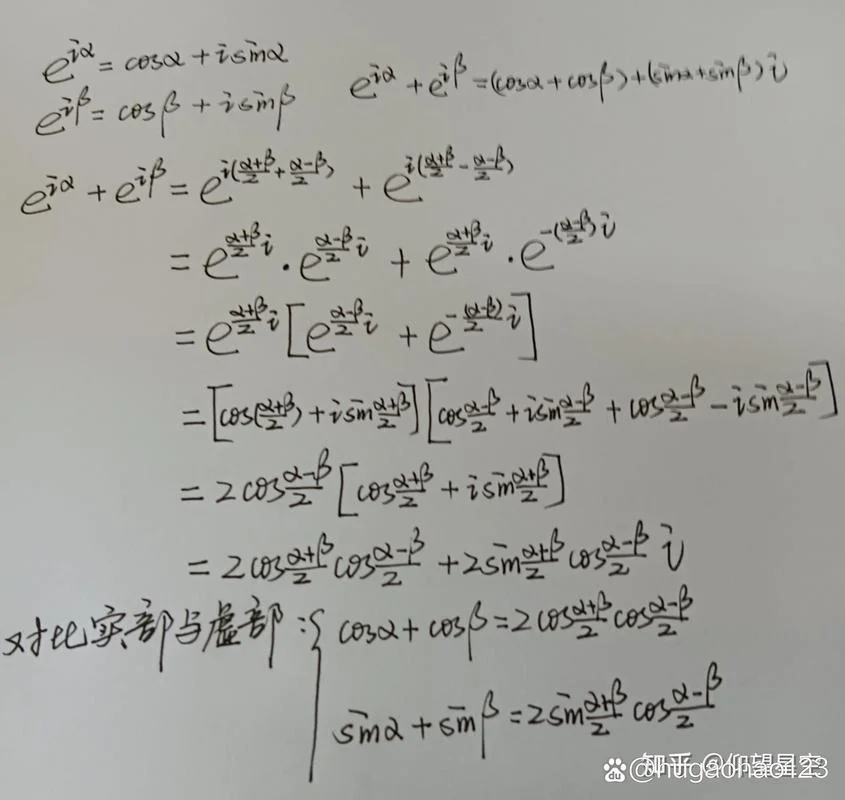 e^{iα} = cosα + i sinα
e^{iβ} = cosβ + i sinβ
e^{iα} + e^{iβ} = (cosα + cosβ) + (sinα + sinβ) i
e^{iα} + e^{iβ} = e^{i(\frac{α+β}{2} + \frac{α-β}{2})} + e^{i(\frac{α+β}{2} - \frac{α-β}{2})}
= e^{\frac{α+β}{2}i} · e^{\frac{α-β}{2}i} + e^{\frac{α+β}{2}i} · e^{-(\frac{α-β}{2})i}
= e^{\frac{α+β}{2}i} [e^{\frac{α-β}{2}i} + e^{-\frac{(α-β)}{2}i}]
= [cos(\frac{α+β}{2}) + i sin\frac{α+β}{2}] [cos\frac{α-β}{2} + i sin\frac{α-β}{2} + cos\frac{α-β}{2} - i sin\frac{α-β}{2}]
= 2cos\frac{α-β}{2} [cos\frac{α+β}{2} + i sin\frac{α+β}{2}]
= 2cos\frac{α+β}{2} cos\frac{α-β}{2} + 2sin\frac{α+β}{2} cos\frac{α-β}{2} i
对比实部与虚部: { cosα + cosβ = 2cos\frac{α+β}{2} cos\frac{α-β}{2}
sinα + sinβ = 2sin\frac{α+β}{2} cos\frac{α-β}{2}
知乎 @仰望星空
@hugaohao123